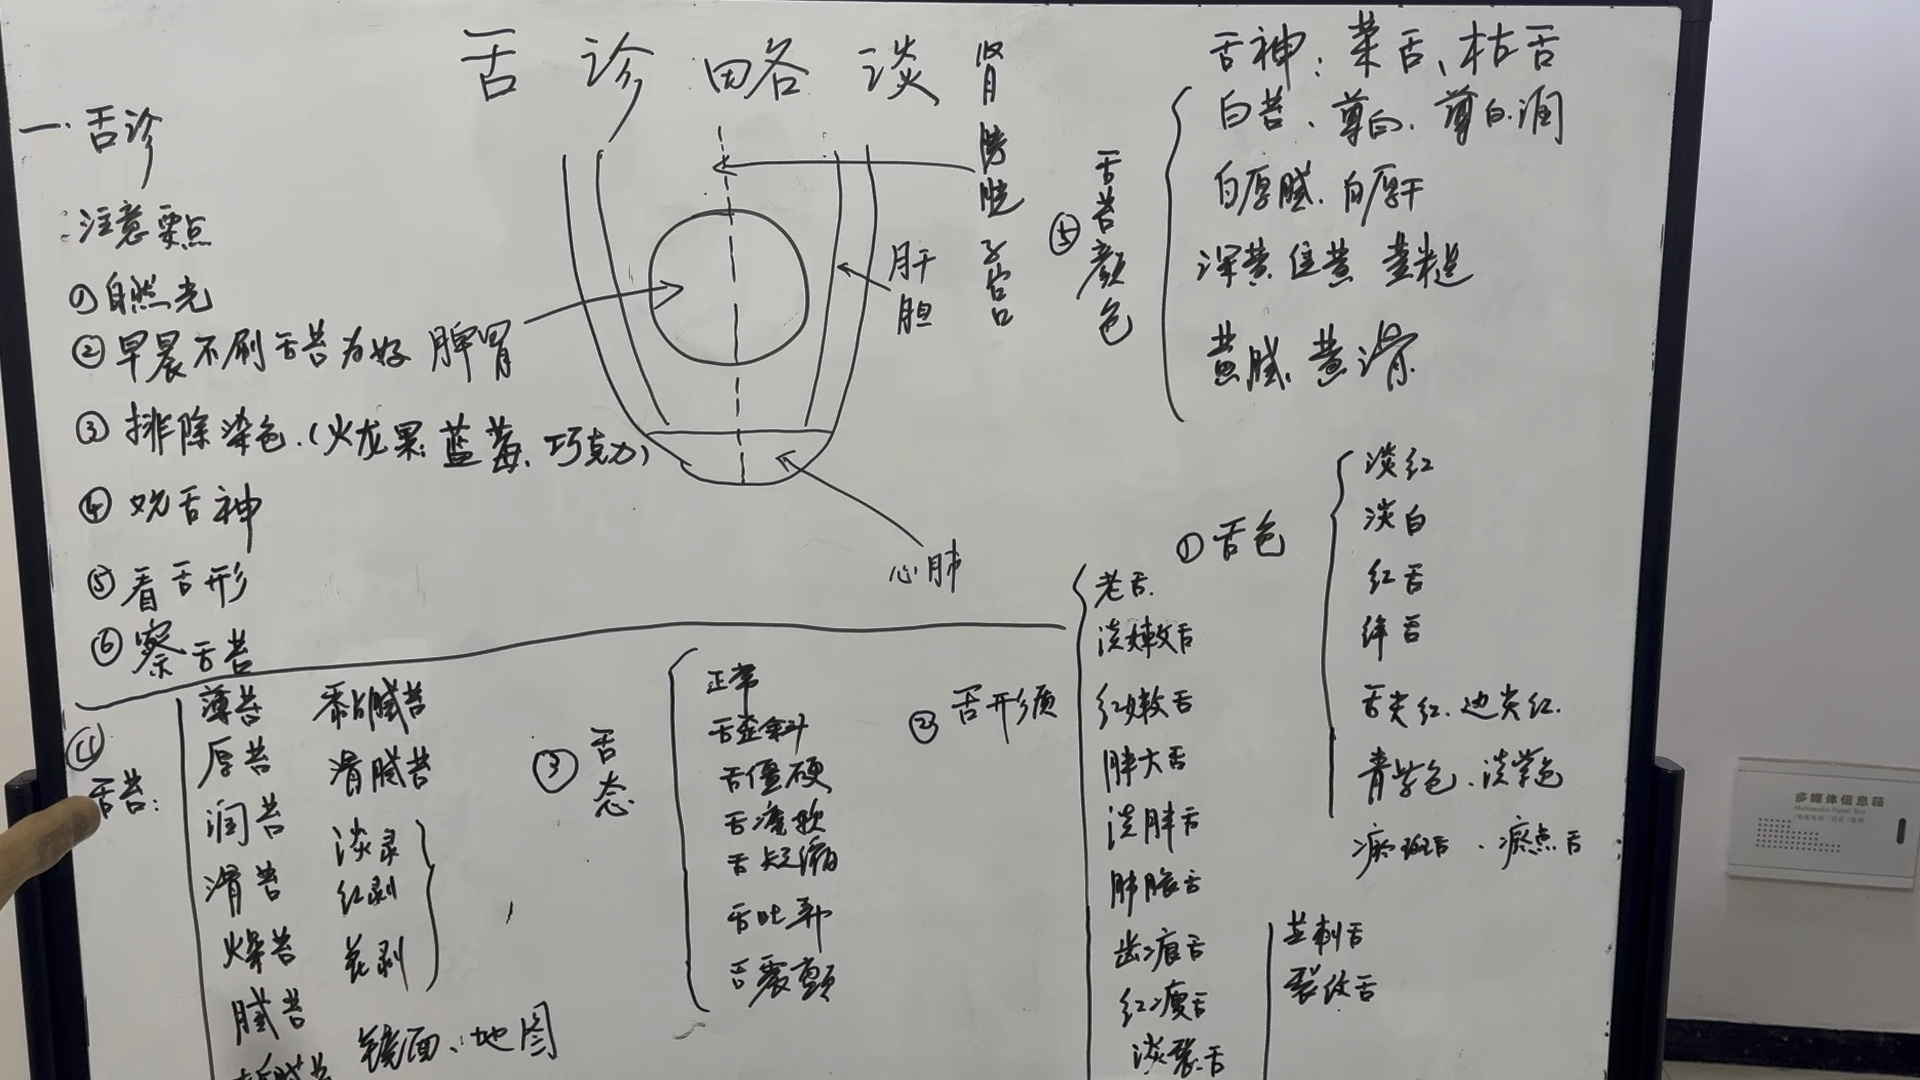 舌诊略谈
一.舌诊
注意要点
①自然光
②早晨不刷舌苔为好
③排除染色.(火龙果.蓝莓.巧克力)
④观舌神
⑤看舌形
⑥察舌苔
肾
膀胱
子宫
肝
胆
脾胃
心肺
舌神:荣舌、枯舌
⑤舌苔颜色
白苔.薄白.薄白润
白厚腻.白厚干
深黄 焦黄
黄腻.黄滑.
①舌色
淡红
淡白
红舌
绛舌
舌尖红.边尖红.
青紫色.淡紫色
瘀斑舌.瘀点舌
②舌形质
老舌.
淡嫩舌
红嫩舌
胖大舌
淡胖舌
肿胀舌
齿痕舌
红瘦舌
淡裂舌
芒刺舌
裂纹舌
③舌态
正常
舌歪斜
舌僵硬
舌痿软
舌短缩
舌吐弄
舌震颤
④舌苔:
薄苔
厚苔
润苔
滑苔
燥苔
腻苔
黏腻苔
滑腻苔
淡剥
红剥
花剥
镜面、地图
多媒体信息箱